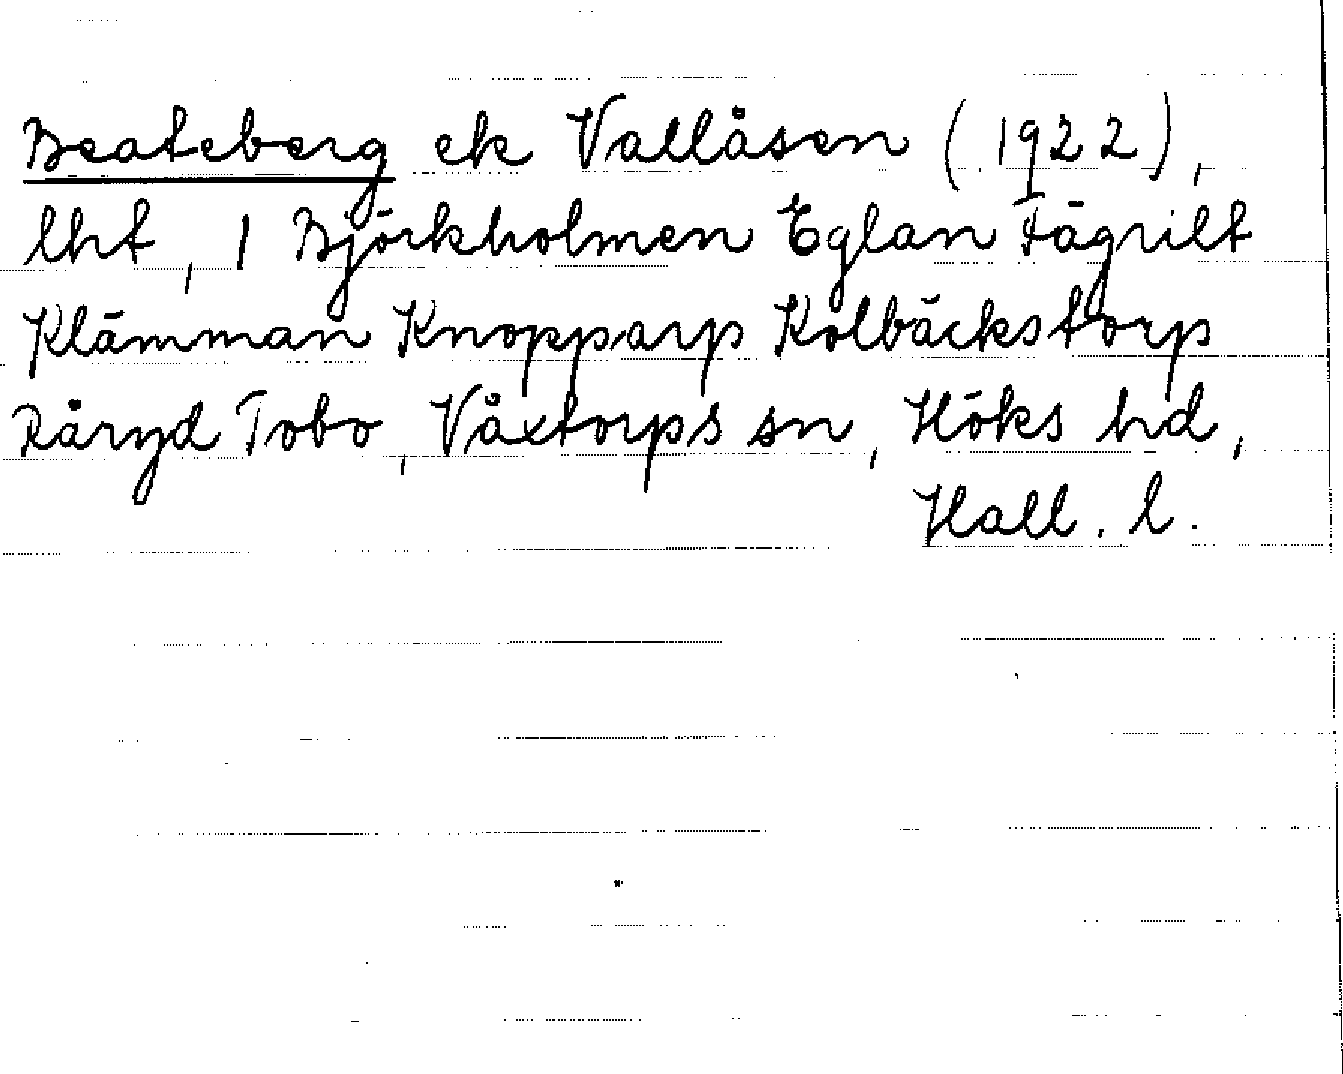 Beateberg ek Vallåsen (1922),
lht, 1 Björkholmen Eglan Fägrilt
Klämman Knopparp Kolbäckstorp
Råryd Tobo, Våxtorps sn, Höks hd,
Hall. l.